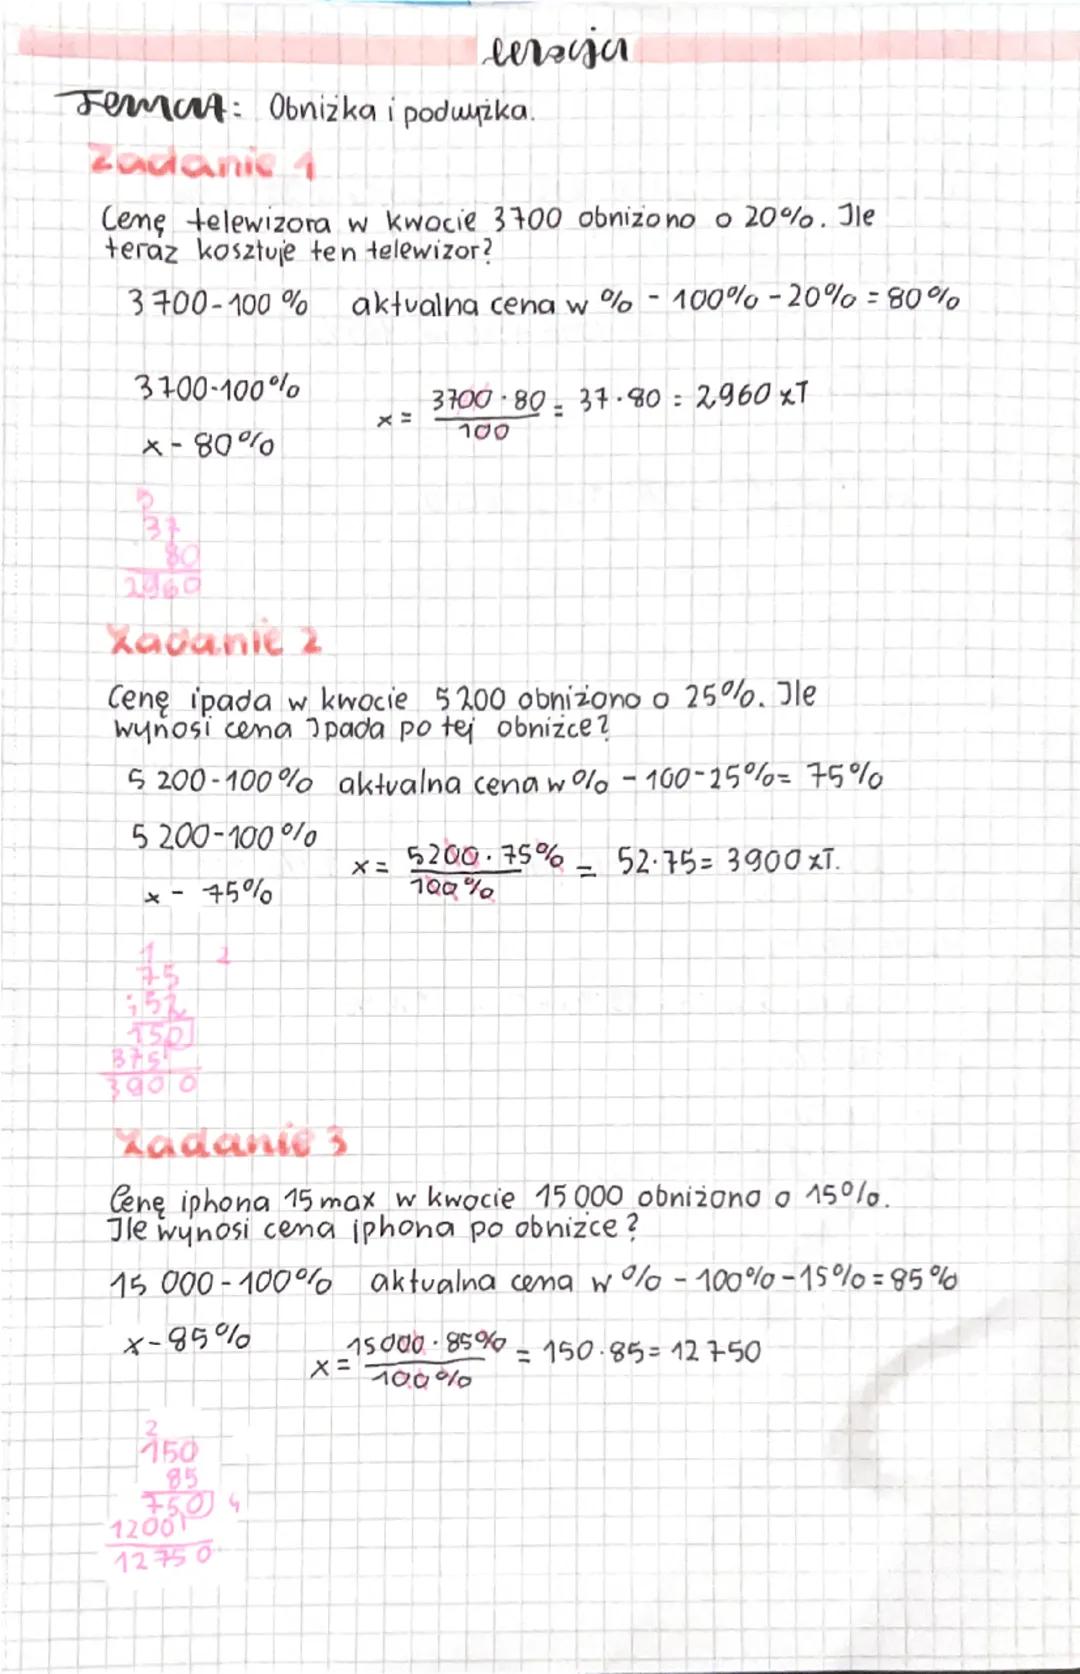 Lekcja
Temat: Obniżka i podwyżka.
Zadanie 1
Cenę telewizora w kwocie 3700 obniżono o 20%. Ile
teraz kosztuje ten telewizor?
3 700-100% aktualna cena w % - 100% - 20% = 80%
3700-100%
x - 80%
x = 3700 · 80 / 100 = 37·80 = 2960 zł
5
37
80
2960
Zadanie 2
Cenę ipada w kwocie 5200 obniżono o 25%. Ile
wynosi cena Ipada po tej obniżce?
5 200-100% aktualna cena w % - 100-25% = 75%
5 200-100%
x - 75%
x = 5200 · 75% / 100% = 52·75 = 3900 zł.
1 2
75
·52
150
375
3900
Zadanie 3
Cenę iphona 15 max w kwocie 15 000 obniżono o 15%.
Ile wynosi cena iphona po obniżce?
15 000-100% aktualna cena w % - 100%-15% = 85%
x-85%
x = 15000 · 85% / 100% = 150·85 = 12 750
2
150
85
750 4
1200
12750